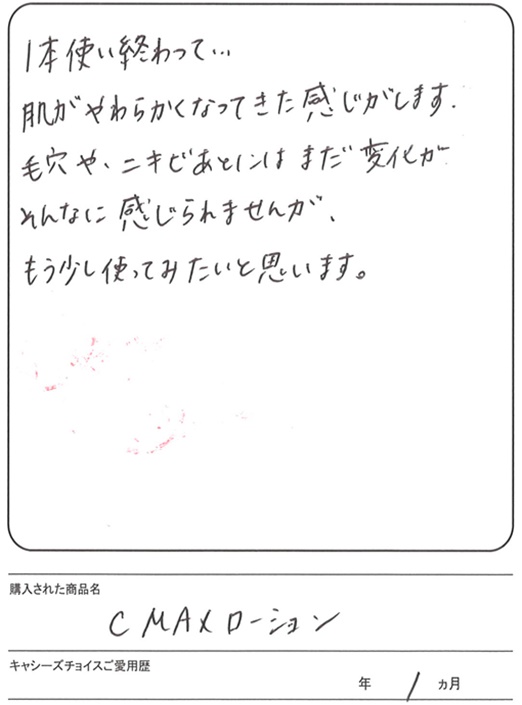 1本使い終わって…
肌がやわらかくなってきた感じがします.
毛穴や、ニキビあとにはまだ変化が
そんなに感じられませんが、
もう少し使ってみたいと思います。
購入された商品名
C MAXローション
キャシーズチョイスご愛用歴
年 1 ヵ月